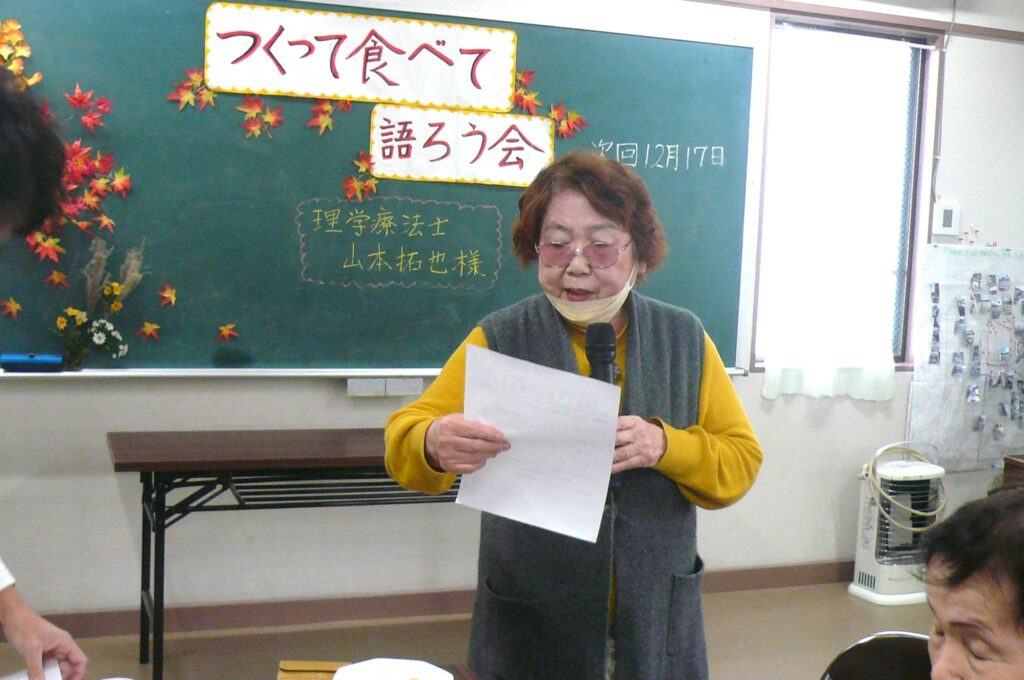 つくって食べて
語ろう会
次回12月17日
理学療法士
山本拓也様